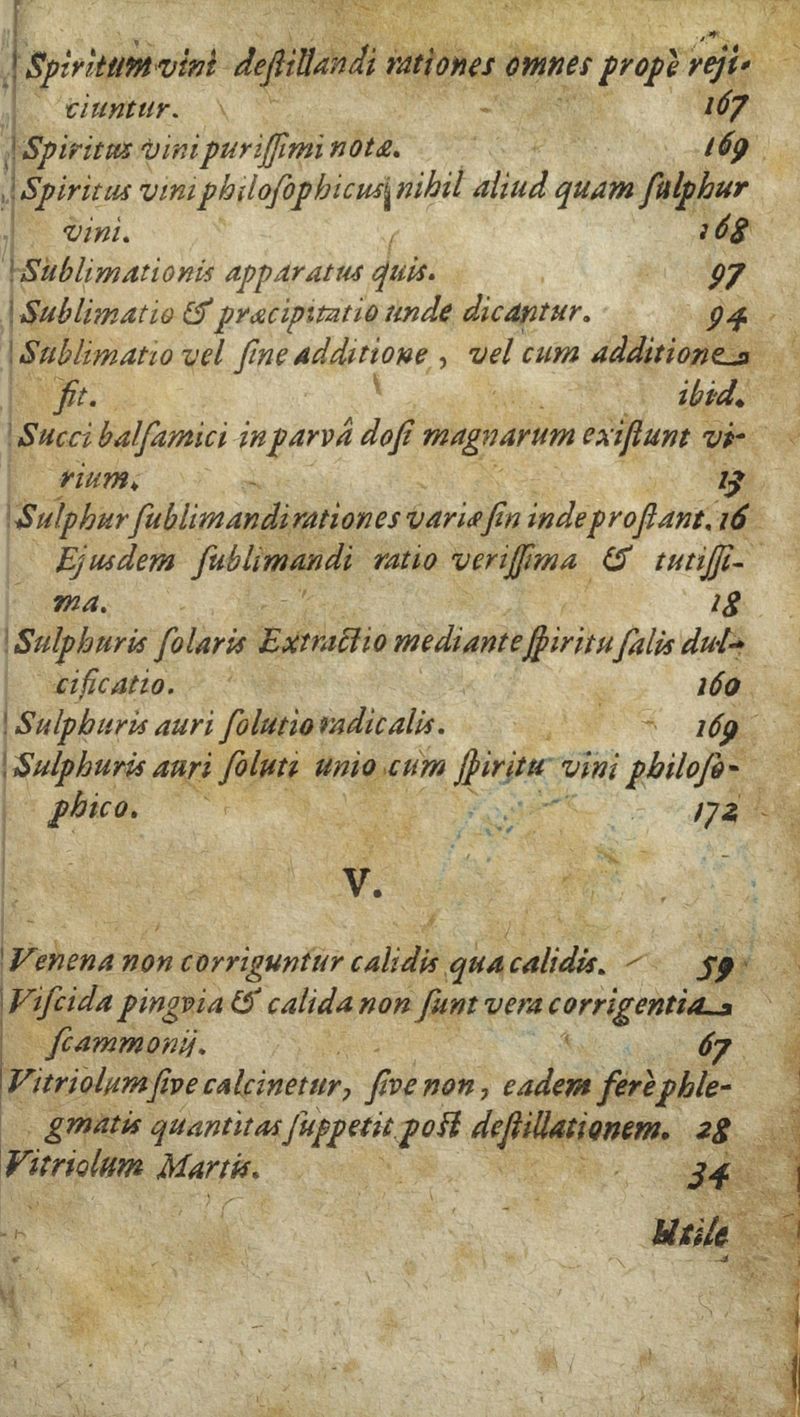 Spiritum vini deſtillandi rationes omnes propè reji-
ciuntur. 167
Spiritus vini puriſſimi notæ. 169
Spiritus vini philoſophicus nihil aliud quam ſulphur
vini. 168
Sublimationis apparatus quis. 97
Sublimatio & præcipitatio unde dicantur. 94
Sublimatio vel ſine additione, vel cum additione
fit. ibid.
Succi balſamici in parvâ doſi magnarum exiſtunt vi-
rium. 13
Sulphur ſublimandi rationes variæ ſin inde proſtant. 16
Ejusdem ſublimandi ratio veriſſima & tutiſſi-
ma. 18
Sulphuris ſolaris Extractio mediante ſpiritu ſalis dul-
cificatio. 160
Sulphuris auri ſolutio radicalis. 169
Sulphuris auri ſoluti unio cum ſpiritu vini philoſo-
phico. 172
V.
Venena non corriguntur calidis qua calidis. 59
Viſcida pingvia & calida non ſunt vera corrigentia
ſcammonij. 67
Vitriolum ſive calcinetur, ſive non, eadem ferè phle-
gmatis quantitas ſuppetit poſt deſtillationem. 28
Vitriolum Martis. 34
Utile